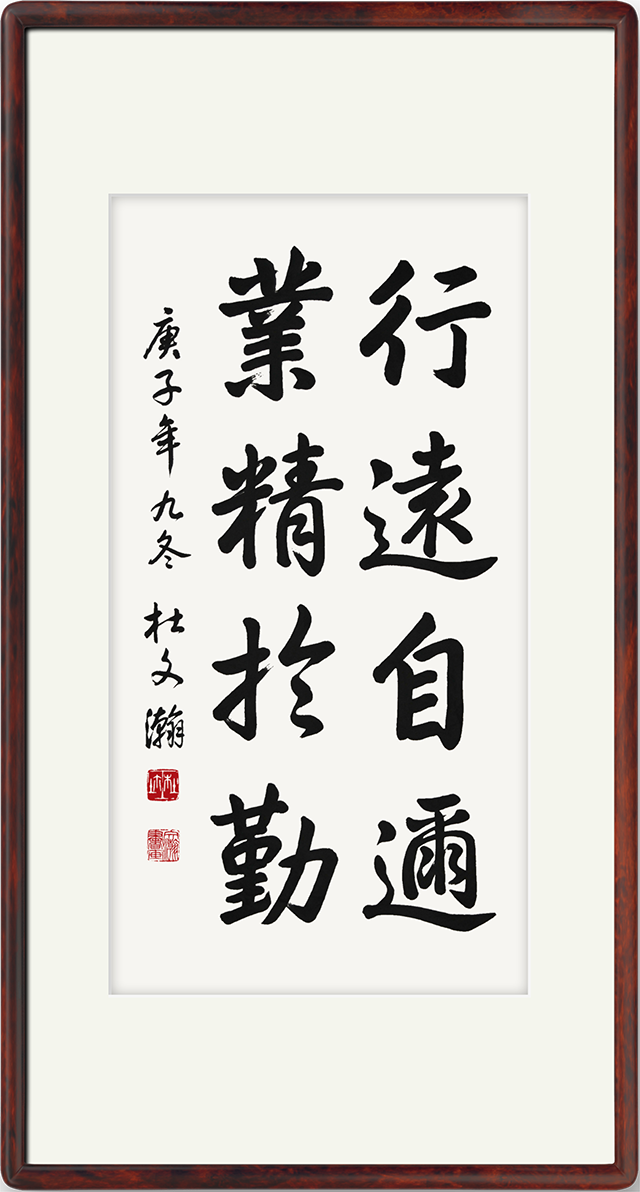 行遠自邇
業精於勤
庚子年九冬 杜文瀚